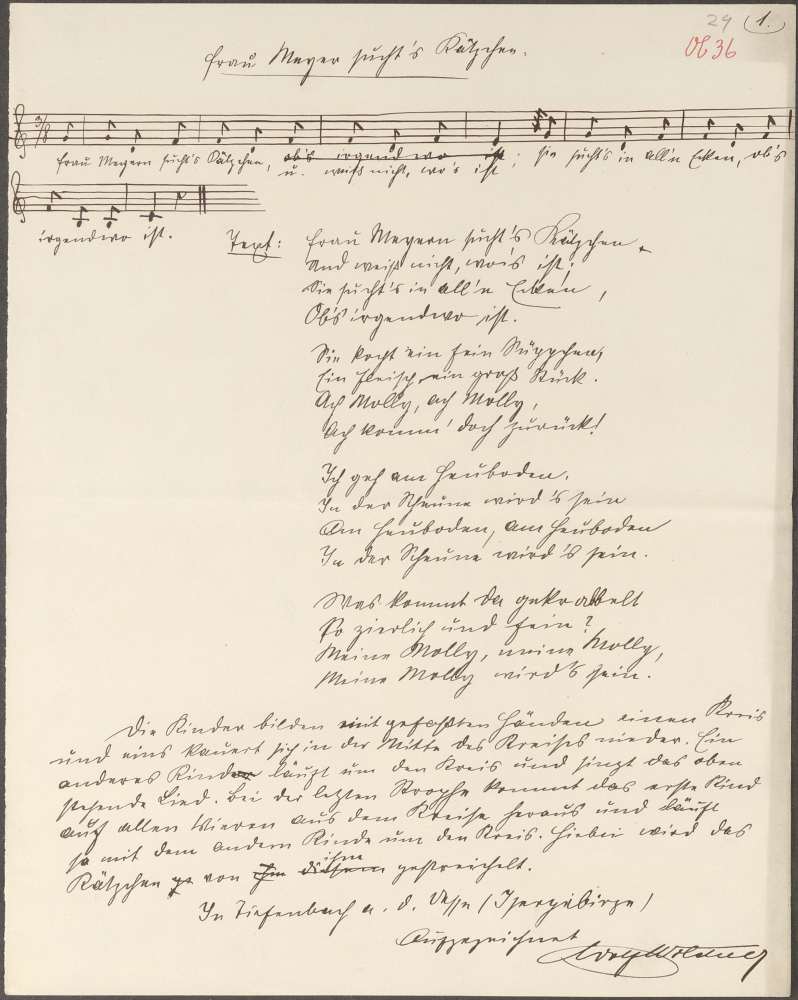 24 1.
Ob 36
Frau Meyer sucht's Kätzchen.
3/8
Frau Meyern sucht's Kätzchen, ob's irgend wo ist; sie sucht's in all'n Ecken, ob's
u. weiß nicht, wo's ist
irgendwo ist.
Text: Frau Meyern sucht's Kätzchen
Und weiß nicht, wo's ist;
Sie sucht's in all'n Ecken,
Ob's irgendwo ist.
Sie kocht ein fein Süppchen,
Ein Fleisch, ein groß Stück.
Ach Molly, ach Molly,
Ach komm' doch zurück!
Ich geh am Heuboden.
In der Scheune wird's sein
Am Heuboden, am Heuboden
In der Scheune wird's sein.
Was kommt da gekrabbelt
So zierlich und fein?
Meine Molly, meine Molly,
Meine Molly wird's sein.
Die Kinder bilden mit gefaßten Händen einen Kreis
und eins kauert sich in der Mitte des Kreises nieder. Ein
anderes Kind läuft um den Kreis und singt das oben
stehende Lied. Bei der letzten Strophe kommt das erste Kind
auf allen Vieren aus dem Kreise heraus und läuft
so mit dem andern Kinde um den Kreis. Hiebei wird das
Kätzchen von ihm diesem ihm gestreichelt.
In Tiefenbach a. d. Desse (Isergebirge)
Aufgezeichnet